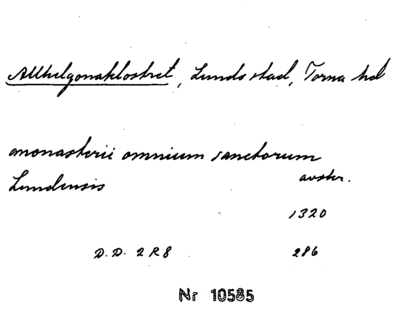 Allhelgonaklostret, Lunds stad, Torna hd
monasterii omnium sanctorum
Lundensis avskr.
1320
D.D. 2 R 8 286
Nr 10585